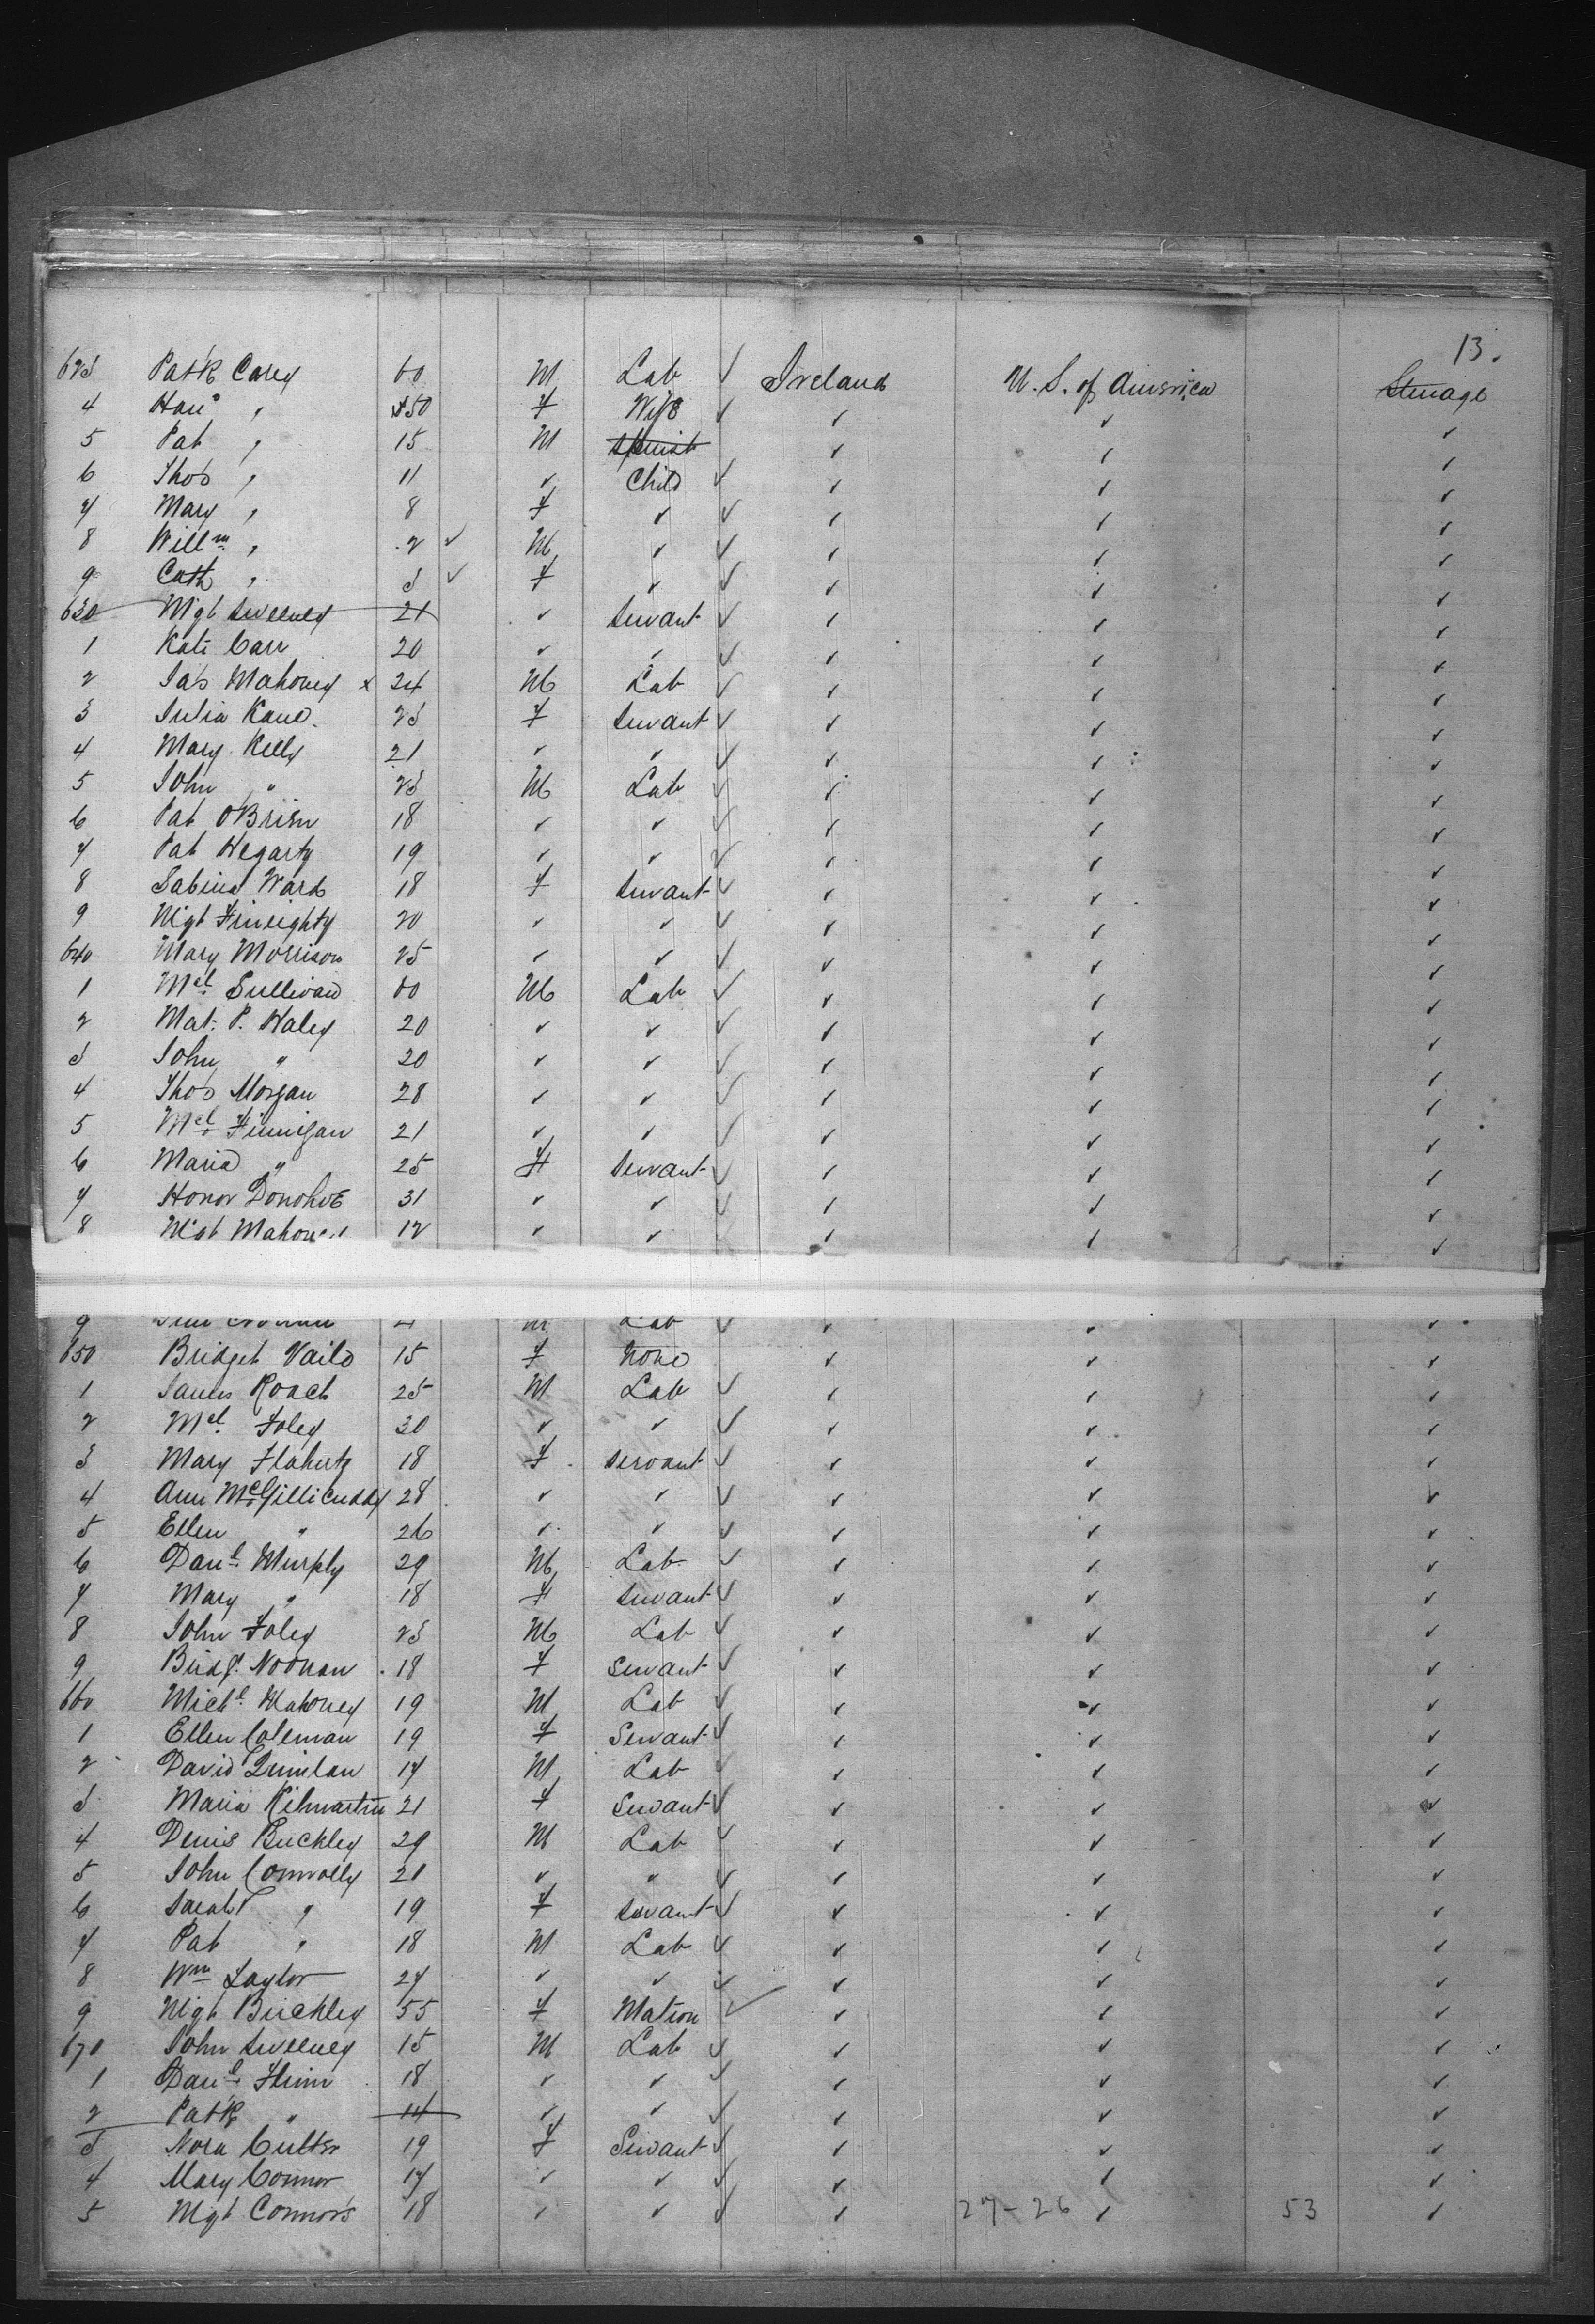 13.
623 Patk Carey 60 M Lab ✓ Ireland U. S. of America Steerage
4 Han " 50 F Wife ✓ ✓ ✓ ✓
5 Pat " 15 M ✓ ✓ ✓
6 Thos " 11 ✓ Child ✓ ✓ ✓ ✓
7 Mary " 8 F ✓ ✓ ✓ ✓ ✓
8 Willm " 2 ✓ M ✓ ✓ ✓ ✓ ✓
9 Cath " 3 ✓ F ✓ ✓ ✓ ✓ ✓
630 Mgt Sweeney 21 ✓ Servant ✓ ✓ ✓ ✓
1 Kate Carr 20 ✓ ✓ ✓ ✓ ✓ ✓
2 Jas Mahoney x 24 M Lab ✓ ✓ ✓ ✓
3 Julia Kane 23 F Servant ✓ ✓ ✓ ✓
4 Mary Kelly 21 ✓ ✓ ✓ ✓ ✓ ✓
5 John " 23 M Lab ✓ ✓ ✓ ✓
6 Pat O'Brien 18 ✓ ✓ ✓ ✓ ✓ ✓
7 Pat Hegarty 19 ✓ ✓ ✓ ✓ ✓ ✓
8 Sabina Ward 18 F Servant ✓ ✓ ✓ ✓
9 Mgt Fineighty 20 ✓ ✓ ✓ ✓ ✓ ✓
640 Mary Morrison 25 ✓ ✓ ✓ ✓ ✓ ✓
1 Mcl Sullivan 60 M Lab ✓ ✓ ✓ ✓
2 Mat. P. Haley 20 ✓ ✓ ✓ ✓ ✓ ✓
3 John " 20 ✓ ✓ ✓ ✓ ✓ ✓
4 Thos Morgan 28 ✓ ✓ ✓ ✓ ✓ ✓
5 Mcl Finnigan 21 ✓ ✓ ✓ ✓ ✓ ✓
6 Maria " 25 F Servant ✓ ✓ ✓ ✓
7 Honor Donohoe 31 ✓ ✓ ✓ ✓ ✓ ✓
8 Mgt Mahoney 12 ✓ ✓ ✓ ✓ ✓ ✓
9 M Lab ✓ ✓ ✓ ✓
650 Bridget Vaile 15 F None ✓ ✓ ✓
1 James Roach 25 M Lab ✓ ✓ ✓ ✓
2 Mcl. Foley 30 ✓ ✓ ✓ ✓ ✓ ✓
3 Mary Flaherty 18 F Servant ✓ ✓ ✓ ✓
4 Ann McGillicuddy 28 ✓ ✓ ✓ ✓ ✓ ✓
5 Ellen " 26 ✓ ✓ ✓ ✓ ✓ ✓
6 Danl Murphy 29 M Lab ✓ ✓ ✓ ✓
7 Mary " 18 F Servant ✓ ✓ ✓ ✓
8 John Foley 23 M Lab ✓ ✓ ✓ ✓
9 Bridgt Noonan 18 F Servant ✓ ✓ ✓ ✓
660 Michl Mahoney 19 M Lab ✓ ✓ ✓ ✓
1 Ellen Coleman 19 F Servant ✓ ✓ ✓ ✓
2 David Quinlan 17 M Lab ✓ ✓ ✓ ✓
3 Maria Kilmartin 21 F Servant ✓ ✓ ✓ ✓
4 Denis Buckley 29 M Lab ✓ ✓ ✓ ✓
5 John Connolly 21 ✓ " ✓ ✓ ✓ ✓
6 Sarah " 19 F Servant ✓ ✓ ✓ ✓
7 Pat " 18 M Lab ✓ ✓ ✓ ✓
8 Wm Taylor 27 ✓ ✓ ✓ ✓ ✓ ✓
9 Mgt Buckley 55 F Matron ✓ ✓ ✓ ✓
670 John Sweeney 15 M Lab ✓ ✓ ✓ ✓
1 Danl Flinn 18 ✓ ✓ ✓ ✓ ✓ ✓
2 Patk " 14 ✓ ✓ ✓ ✓ ✓ ✓
3 Nora Culter 19 F Servant ✓ ✓ ✓ ✓
4 Mary Connor 17 ✓ ✓ ✓ ✓ ✓ ✓
5 Mgt Connors 18 ✓ ✓ ✓ ✓ 27-26 ✓ 53 ✓